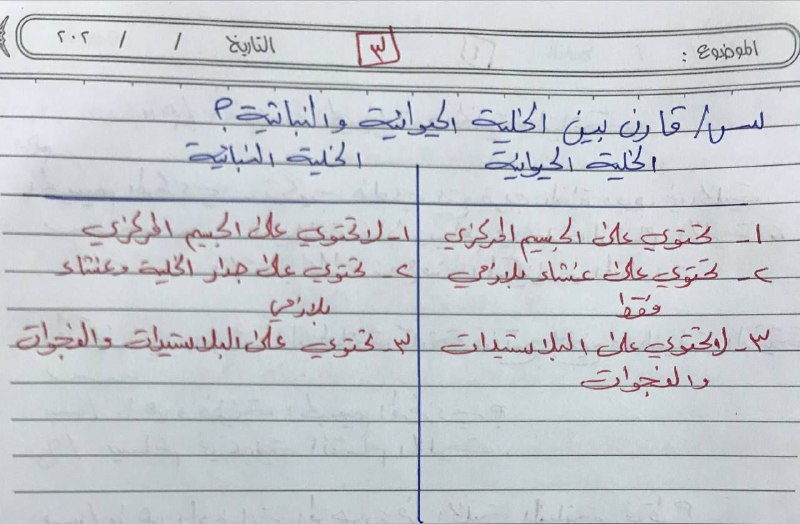 الموضوع : ٣ التاريخ / / ٢٠٢
س/ قارن بين الخلية الحيوانية والنباتية؟
الخلية الحيوانية الخلية النباتية
١- تحتوي على الجسيم المركزي ١- لا تحتوي على الجسيم المركزي
٢- تحتوي على غشاء بلازمي ٢- تحتوي على جدار الخلية وغشاء
فقط بلازمي
٣- لا تحتوي على البلاستيدات ٣- تحتوي على البلاستيدات والفجوات
والفجوات